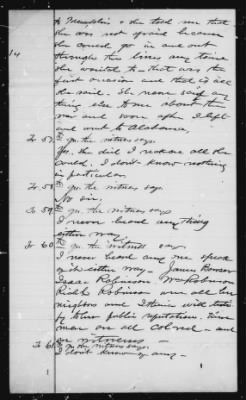 to Memphis & she told me that
she was not afraid because
she could go in and out
through the lines any time
she wanted to - that was the
first occasion and that is all
she said. She never said any
thing else to me about the
war and soon after I left
and went to Alabama,
14
To 57th qu. the witness says
Yes. She did I reckon all she
could. I don't know nothing
in particular.
To 58th qu. the witness says
No sir,
To 59th qu. the witness says
I never heard any thing
either way.
To 60th qu. the witness says
I never heard any one speak
of it either way - James Bowser
Isaac Robinson,
Robinson were all her
neighbors and I think will
by public reputation.
are all Colored - and
on witness -
To 61st qu. the witness says,
I don't know of any -